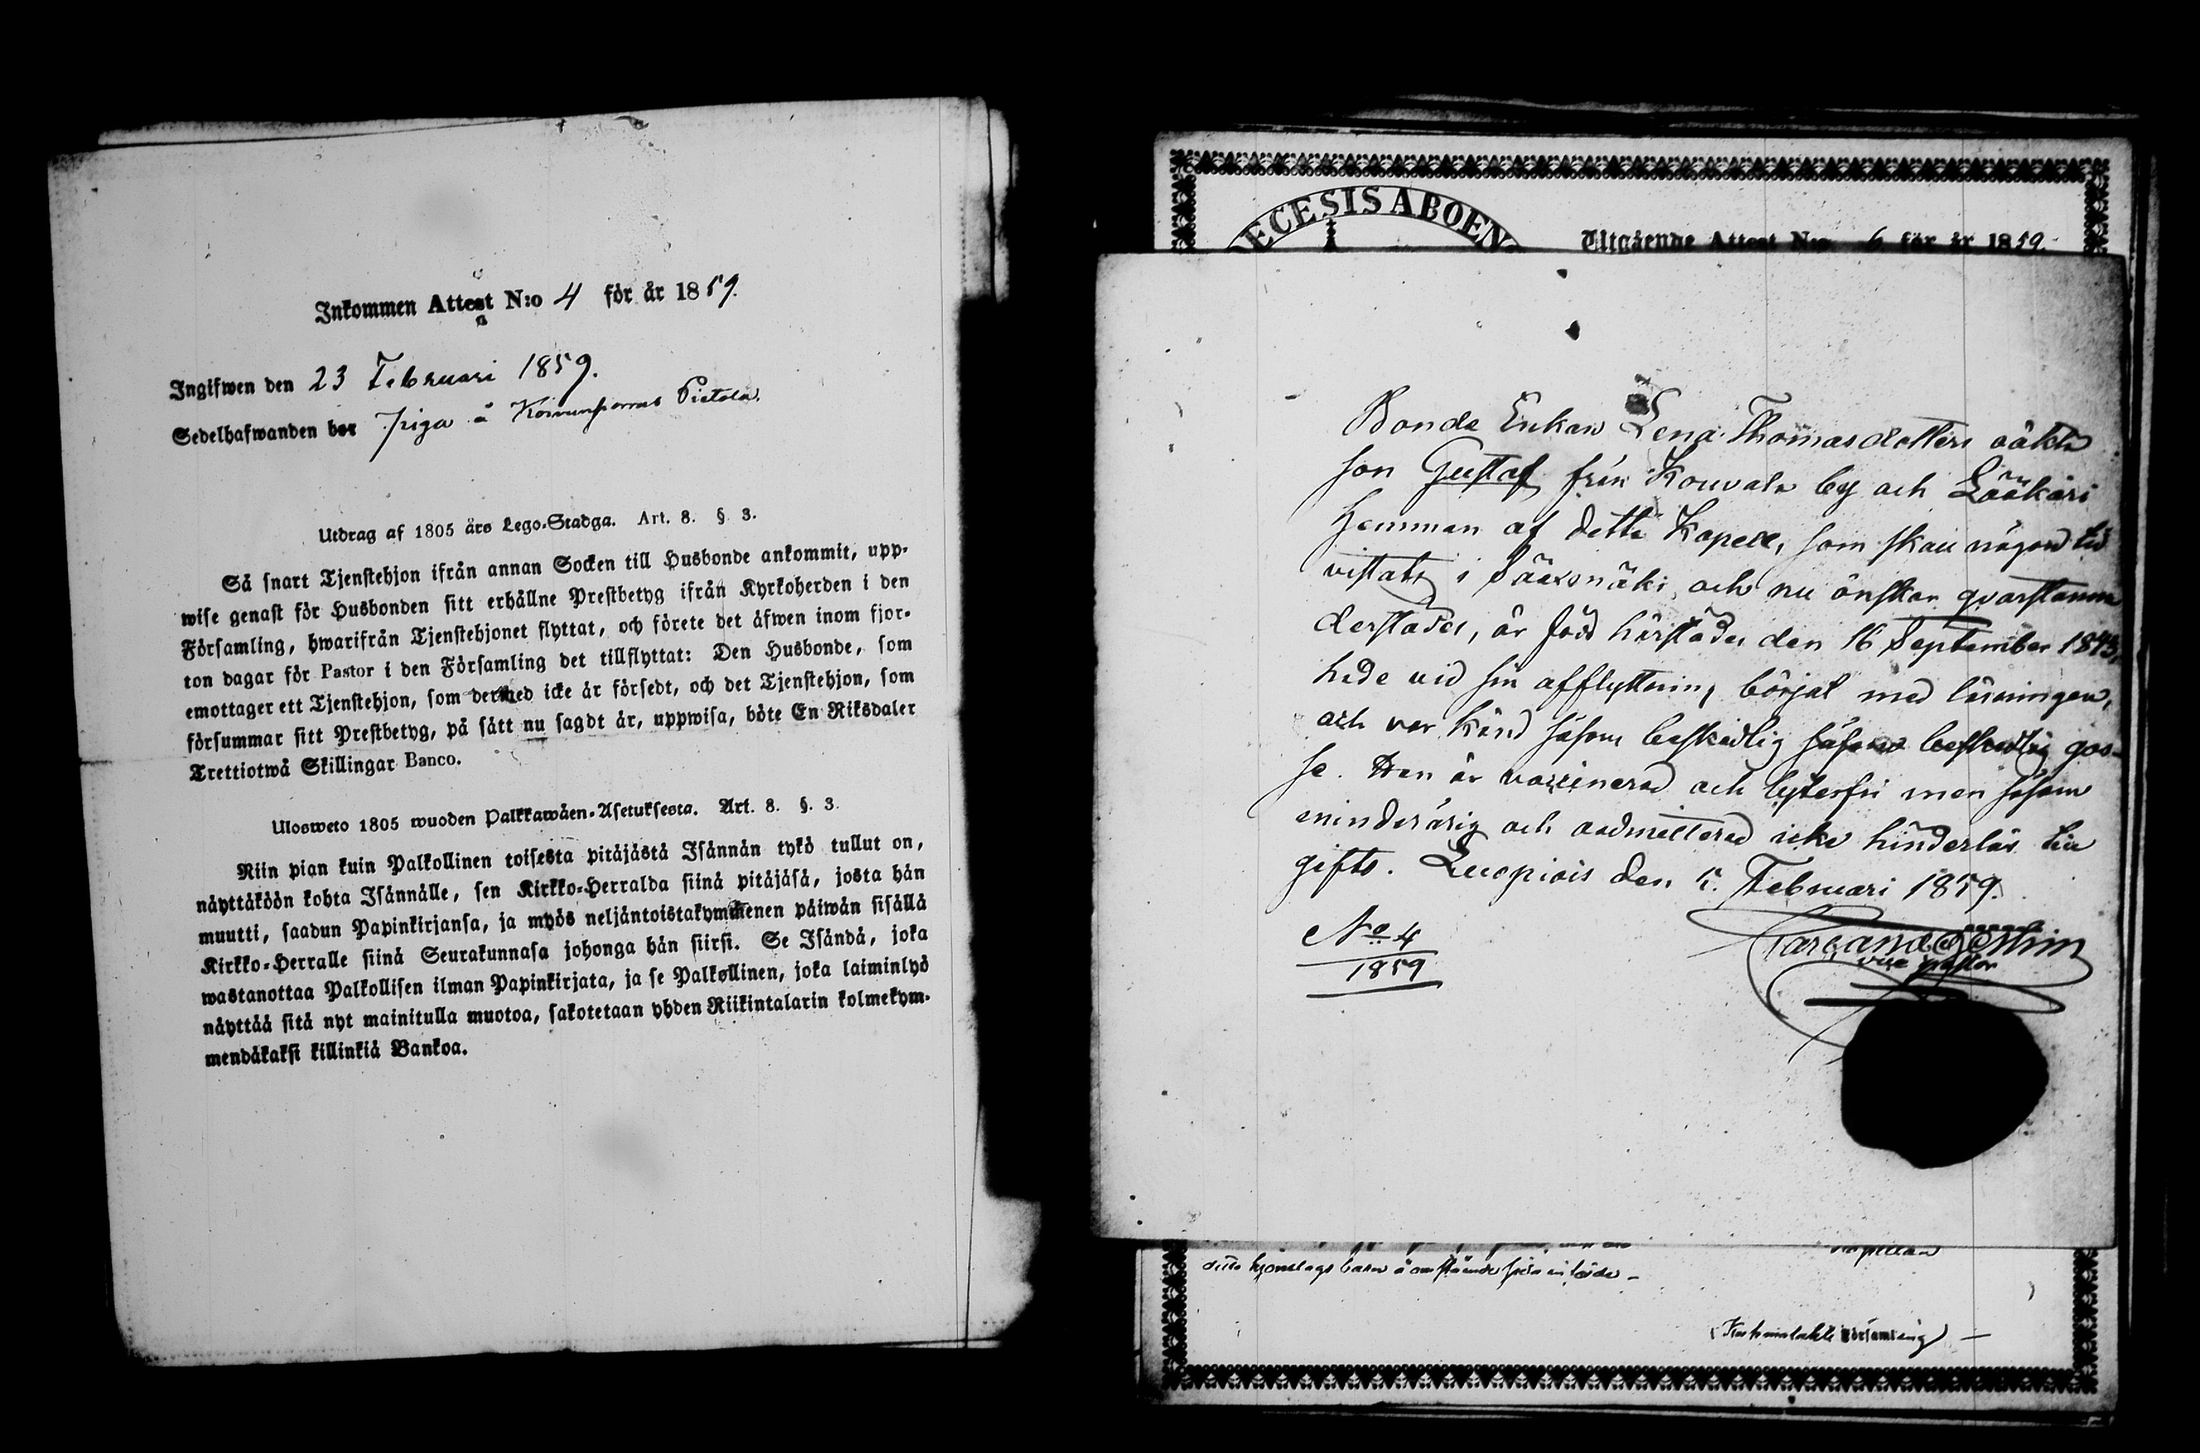 Inkommen Attest N:o 4 för år 1859.
Ingifwen den 23 Februari 1859.
Sedelhafwanden bor Piga å Pietola.
Utdrag af 1805 års Lego-Stadga. Art. 8. § 3.
Så snart Tjenstehjon ifrån annan Socken till Husbonde ankommit, upp-
wise genast för Husbonden sitt erhållne Prestbetyg ifrån Kyrkoherden i den
Församling, hwarifrån Tjenstehjonet flyttat, och förete det åfwen inom fjor-
ton dagar för Pastor i den Församling det tillflyttat: Den Husbonde, som
emottager ett Tjenstehjon, som dermed icke är försedt, och det Tjenstehjon, som
försummar sitt Prestbetyg, på sätt nu sagdt är, uppwisa, böte En Riksdaler
Trettiotwå Skillingar Banco.
Ulosweto 1805 wuoden Palkkawäen-Asetuksesta. Art. 8. §. 3.
Niin pian kuin Palkollinen toisesta pitäjästä Isännän tykö tullut on,
näyttäköön kohta Isännälle, sen Kirkko-Herralda siinä pitäjäsä, josta hän
muutti, saadun Papinkirjansa, ja myös neljäntoistakymmenen päiwän sisällä
Kirkko-Herralle siinä Seurakunnasa johonga hän siirsi. Se Isändä, joka
wastanottaa Palkollisen ilman Papinkirjata, ja se Palkollinen, joka laiminlyö
näyttää sitä nyt mainitulla muotoa, sakotetaan yhden Riikintalarin kolmekym-
mendäkaksi killinkiä Bankoa.
ECESIS ABOEN
Utgående Attest N:o 6 för år 1859.
Bonde Enkan Lena Thomasdotters oäkta
son Gustaf från Kouvala by och Lääkäri
hemman af detta Kapell, som skall någon tid
vistats i Sääxmäki, och nu önskar qvarstanna
derstädes, är född härstädes den 16 September 1843,
hade vid sin afflyttning börjat med läsningen,
och var känd såsom beskedlig såsom beskedlig gos-
se. Han är vaccinerad och lytesfri men såsom
minderårig och oadmitterad icke hinderlös till
gifte. Luopiois den 5. Februari 1859.
No 4
1859
vice pastor
Kapellan
församling)